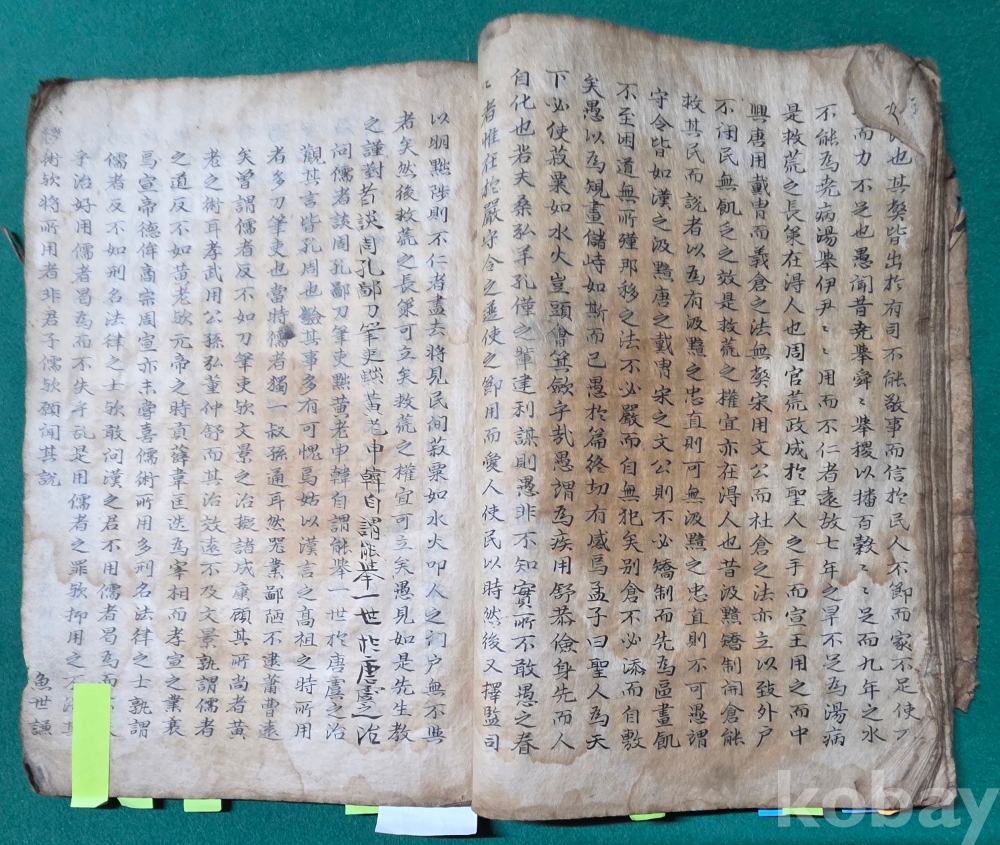 也其弊皆出於有司不能敬事而信於民人不節而家不足使
而力不足也愚聞昔堯擧舜〻擧稷以播百穀〻〻足而九年之水
不能為堯病湯擧伊尹〻〻用而不仁者遠故七年之旱不足為湯病
是救荒之長策在得人也周官荒政成於聖人之手而宣王用之而中
興唐用戴冑而義倉之法無弊宋用文公而社倉之法亦立以致外戶
不閉民無飢乏之效是救荒之權宜亦在得人也昔汲黯矯制開倉能
救其民而說者以為有汲黯之忠直則可無汲黯之忠直則不可愚謂
守令皆如漢之汲黯唐之戴冑宋之文公則不必矯制而先為區畫飢
不至困道無所殣那移之法不必嚴而自無犯矣別倉不必添而自敷
矣愚以為規畫儲峙如斯而已愚於篇終切有感焉孟子曰聖人為天
下必使菽粟如水火豈頭會箕斂乎哉愚謂為疾用舒恭儉身先而人
自化也若夫桑弘羊孔僅之輩達利誤則愚非不知實所不敢愚之眷
〻者惟在於嚴守令之選使之節用而愛人使民以時然後又擇監司
以明黜陟則不仁者盡去將見民間菽粟如水火叩人之門戶無不與
者矣然後救荒之長策可立矣救荒之權宜可立矣愚見如是先生教
之謹對
若談周孔鄙刀筆吏黜黃老申韓自謂能擧一世於唐虞之治
問儒者談周孔鄙刀筆吏黜黃老申韓自謂能擧一世於唐虞之治
觀其言皆孔周也驗其事多有可愧焉姑以漢言之高祖之時所用
者多刀筆吏也當時儒者獨一叔孫通耳然器業鄙陋不逮蕭曹遠
矣曾謂儒者反不如刀筆吏歟文景之治擬諸成康顧其所尚者黃
老之術耳孝武用公孫弘董仲舒而其治效遠不及文景孰謂儒者
之道反不如黃老歟元帝之時貢薛韋匡迭為宰相而孝宣之業衰
焉宣帝德侔高宗周宣亦未嘗喜儒術所用多刑名法律之士孰謂
儒者反不如刑名法律之士歟敢問漢之君不用儒者曷為而
乎治好用儒者曷為而不失乎乱是用儒者之罪歟抑用之
術歟將所用者非君子儒歟願聞其說
魚世謙
kobay